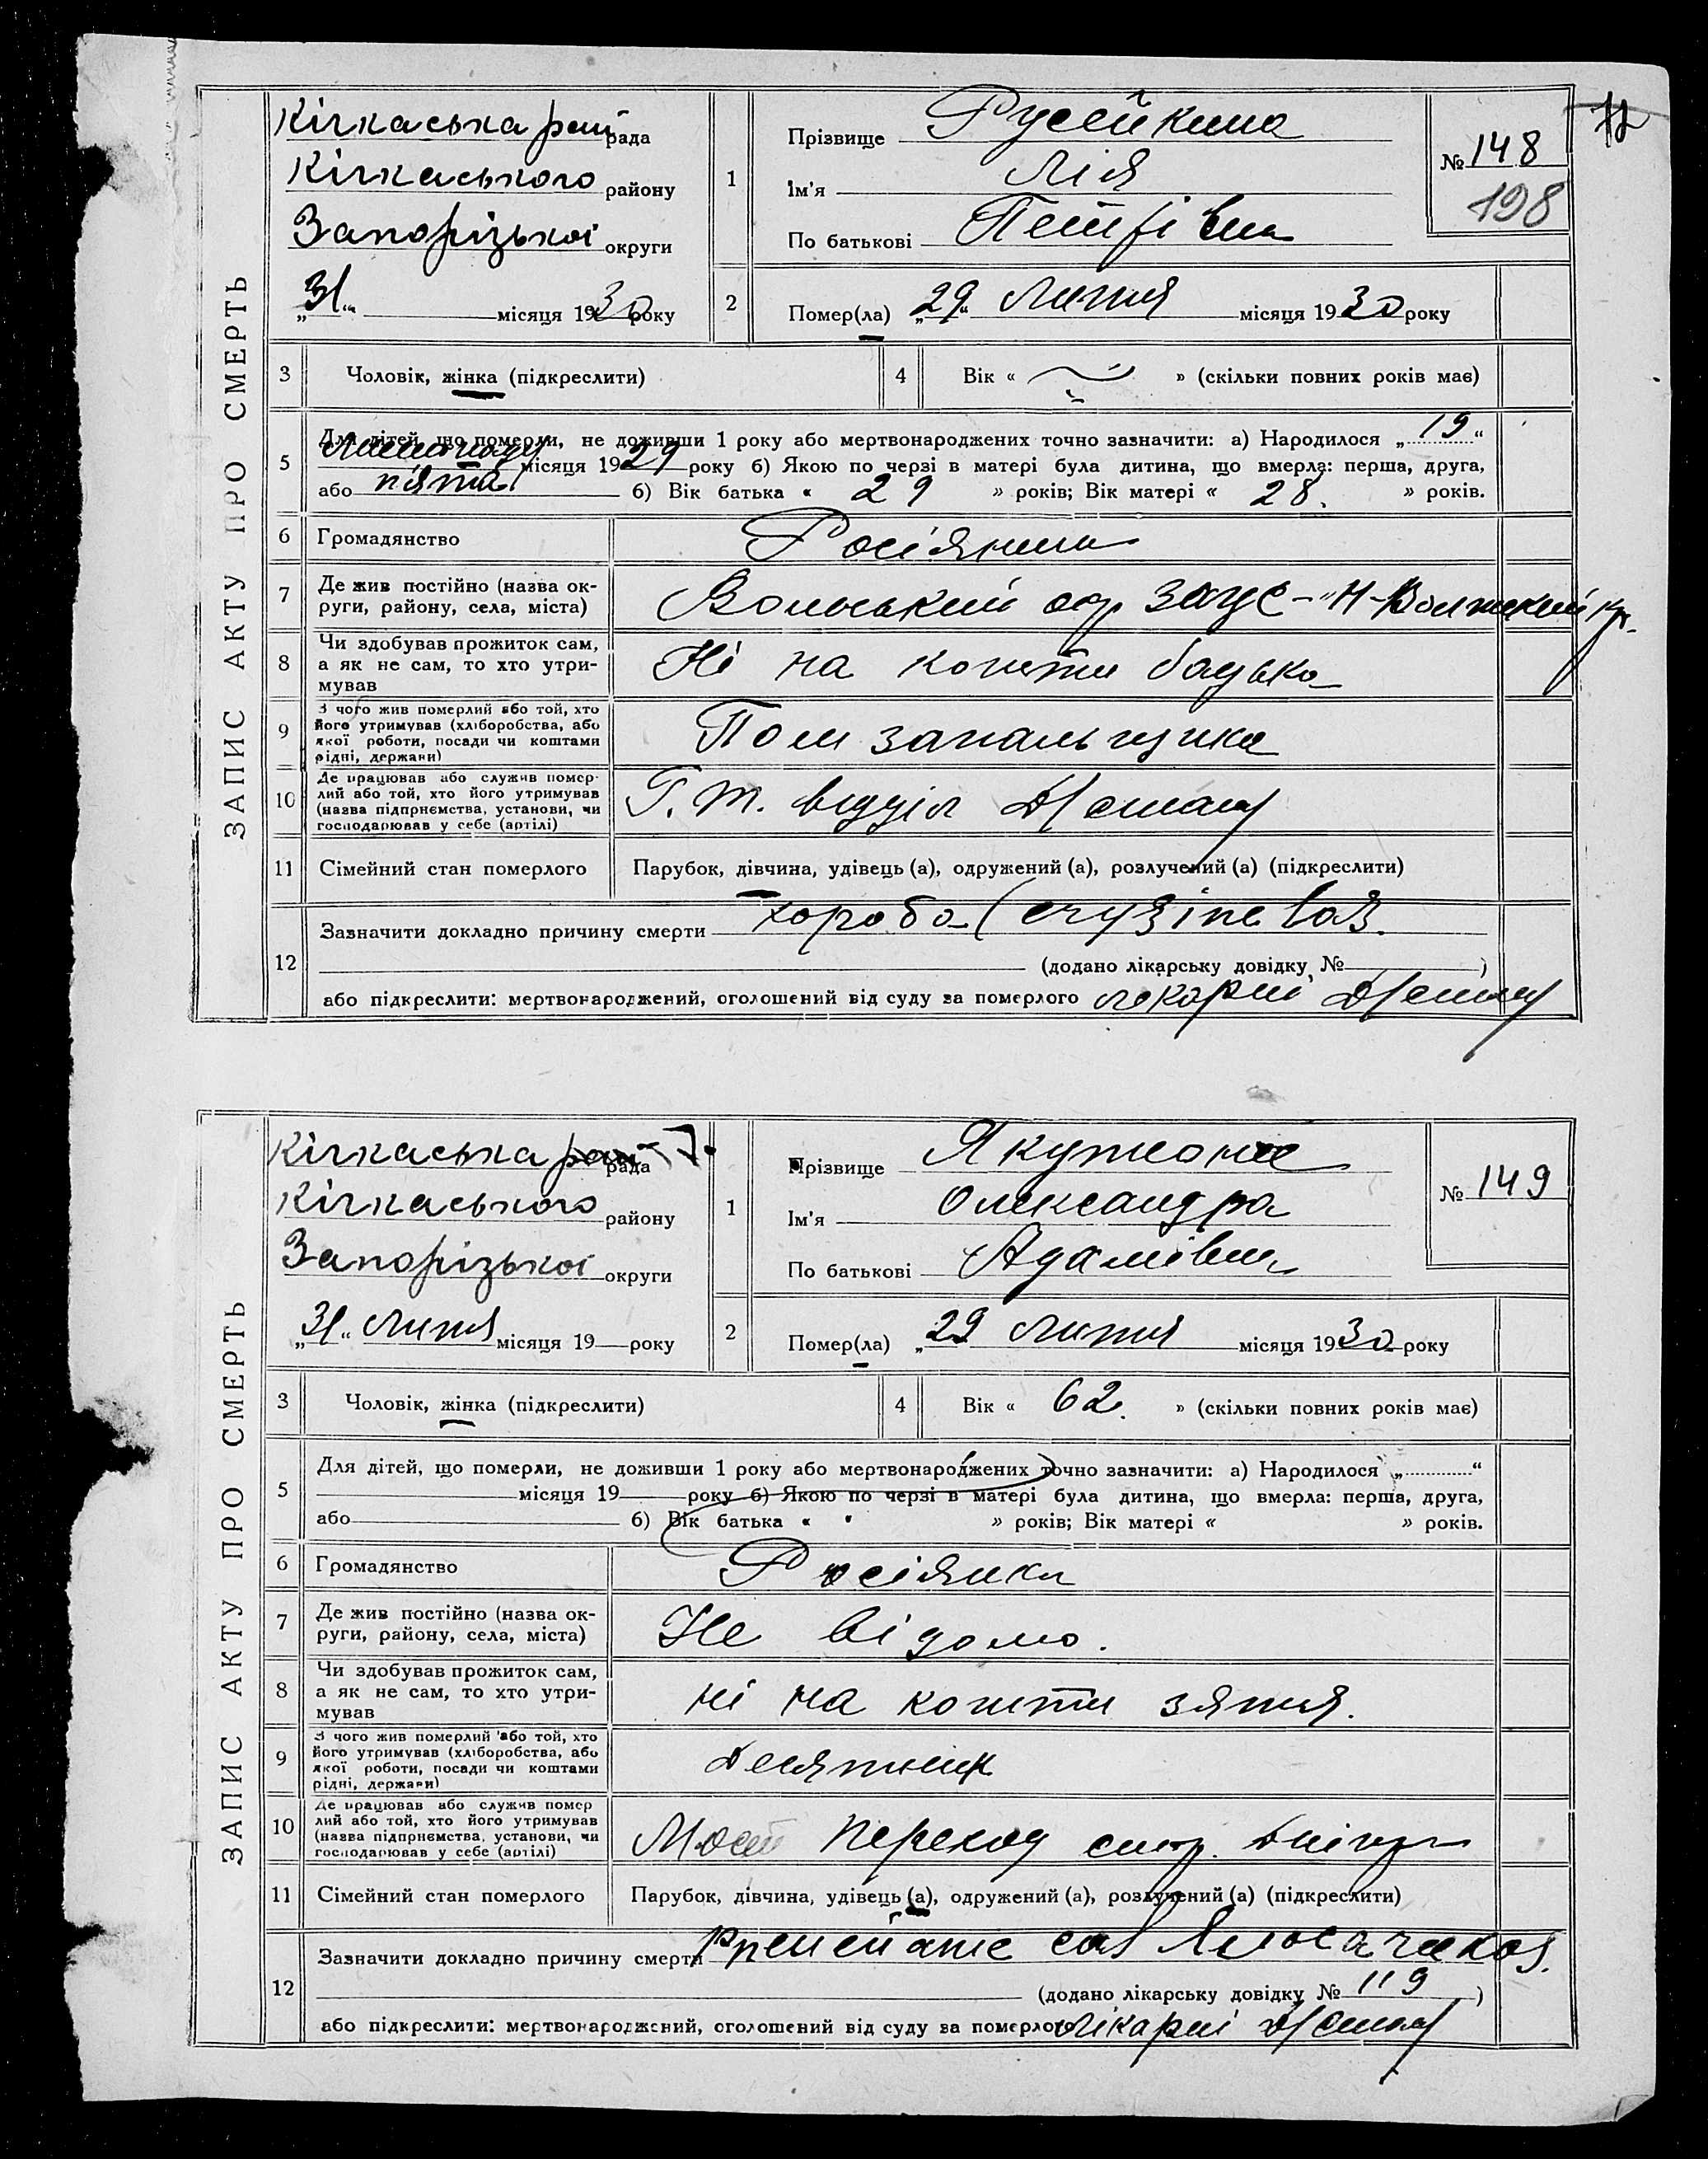 ЗАПИС АКТУ ПРО СМЕРТЬ
Кічкаська рай рада
Кічкаського району
Запорізької округи
„31“ місяця 1930 року
1
Прізвище Русейкина
Ім'я Лія
По батькові Петрівна
№ 148
198
2
Помер(ла) „29“ Липня місяця 1930 року
3
Чоловік, жінка (підкреслити)
4
Вік « » (скільки повних років має)
5
Для дітей, що померли, не доживши 1 року або мертвонароджених точно зазначити: а) Народилося „19“
Листопаду місяця 1929 року б) Якою по черзі в матері була дитина, що вмерла: перша, друга,
або п'ята б) Вік батька « 29 » років; Вік матері « 28. » років.
6
Громадянство
Росіянин
7
Де жив постійно (назва ок-
руги, району, села, міста)
Вольський Н-Волжский кр.
8
Чи здобував прожиток сам,
а як не сам, то хто утри-
мував
Ні на кошти батька
9
З чого жив померлий або той, хто
його утримував (хліборобства, або
якої роботи, посади чи коштами
рідні, держави)
Пом запальщика
10
Де працював або служив помер-
лий або той, хто його утримував
(назва підприємства, установи, чи
господарював у себе (артілі)
Г. Т. відділ
11
Сімейний стан померлого
Парубок, дівчина, удівець (а), одружений (а), розлучений (а) (підкреслити)
12
Зазначити докладно причину смерти хороба
(додано лікарську довідку № )
або підкреслити: мертвонароджений, оголошений від суду за померлого лікарні
ЗАПИС АКТУ ПРО СМЕРТЬ
Кічкаська рада
Кічкаського району
Запорізької округи
„31“ Липня місяця 19 року
1
Прізвище
Ім'я Олександра
По батькові Адамівна
№ 149
2
Помер(ла) „29 Липня місяця 1930 року
3
Чоловік, жінка (підкреслити)
4
Вік « 62. » (скільки повних років має)
5
Для дітей, що померли, не доживши 1 року або мертвонароджених точно зазначити: а) Народилося „ “
місяця 19 року б) Якою по черзі в матері була дитина, що вмерла: перша, друга,
або б) Вік батька « » років; Вік матері « » років.
6
Громадянство
Росіянка
7
Де жив постійно (назва ок-
руги, району, села, міста)
Не відомо.
8
Чи здобував прожиток сам,
а як не сам, то хто утри-
мував
ні на кошти зятя.
9
З чого жив померлий або той, хто
його утримував (хліборобства, або
якої роботи, посади чи коштами
рідні, держави)
Десятник
10
Де працював або служив помер
лий або той, хто його утримував
(назва підприємства, установи, чи
господарював у себе (артілі)
Мост переход
11
Сімейний стан померлого
Парубок, дівчина, удівець (а), одружений (а), розлучений (а) (підкреслити)
12
Зазначити докладно причину смерти
(додано лікарську довідку № 119 )
або підкреслити: мертвонароджений, оголошений від суду за померлого лікарні